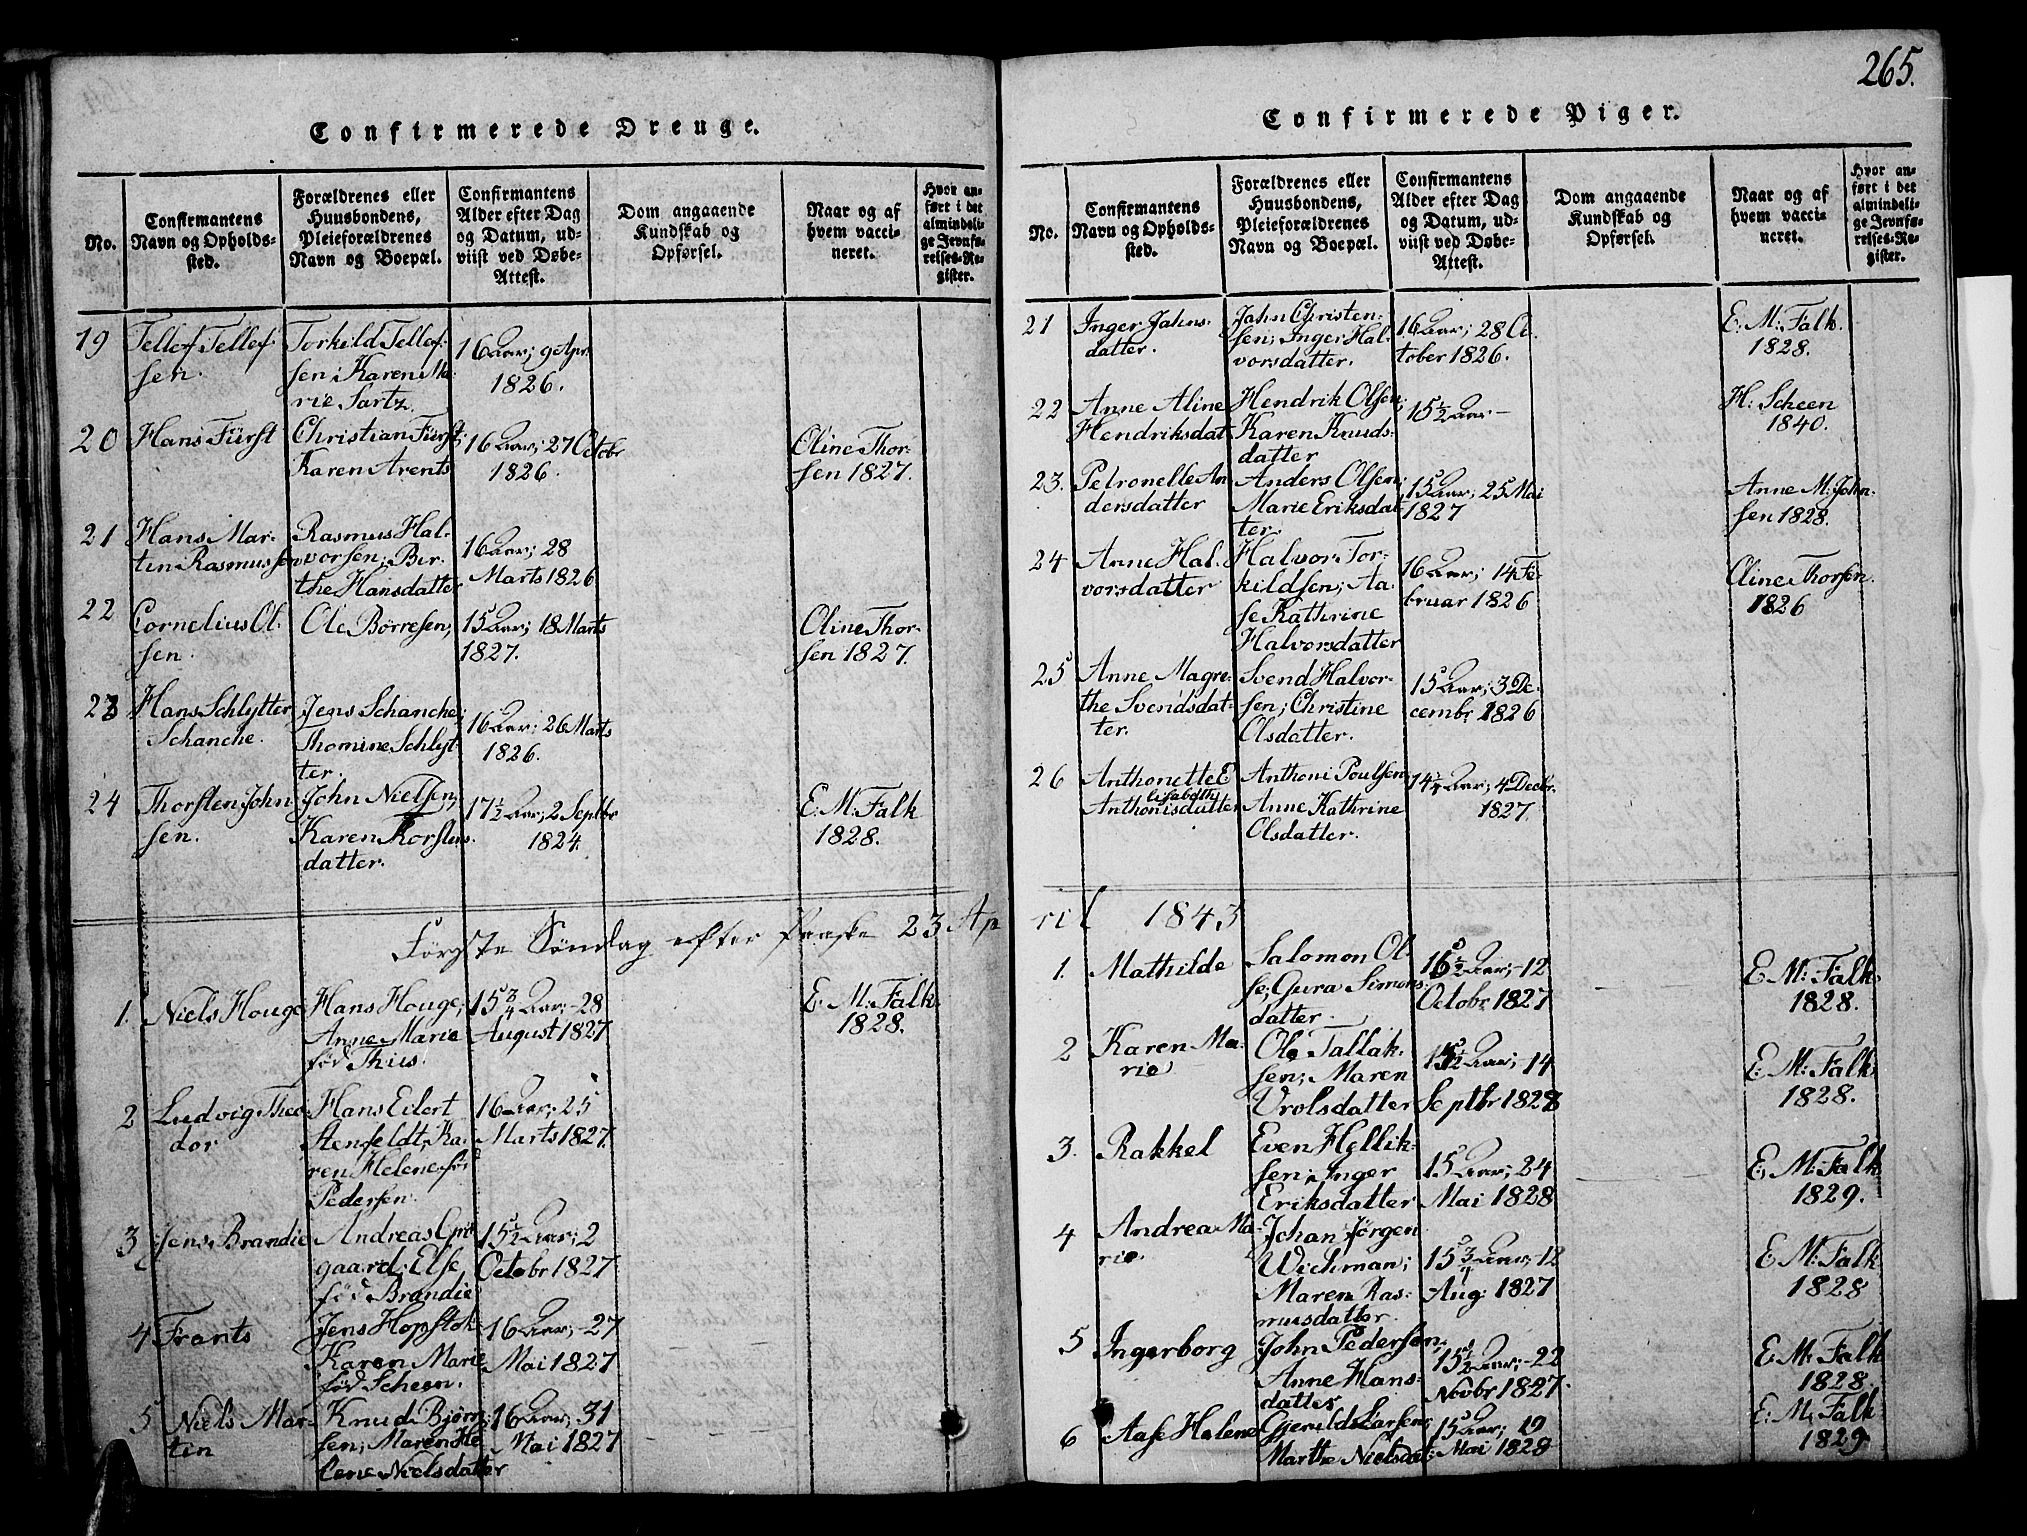 265.
Confirmerede Drenge.
No.
Confirmantens
Navn og Opholds-
sted.
Forældrenes eller
Huusbondens,
Pleieforældrenes
Navn og Boepæl.
Confirmantens
Alder efter Dag
og Datum, ud-
viist ved Døbe-
Attest.
Dom angaaende
Kundskab og
Opførsel.
Naar og af
hvem vacci-
neret.
Hvor an-
ført i det
almindeli-
ge Jevnfø-
relses-Re-
gister.
19
Tellef Tellef-
sen.
Torkild Tellef-
sen; Karen Ma-
rie Sartz.
16 Aar; 9 Apr.
1826.
20
Hans Fürst
Christian Fürst;
Karen Arents
16 Aar; 27 Octobr
1826.
Oline Thor-
sen 1827.
21
Hans Mar-
tin Rasmussen
Rasmus Hal-
vorsen; Bir-
the Hansdatter
16 Aar; 28
Marts 1826
22
Cornelius Ol-
sen.
Ole Børresen;
15 Aar; 18 Marts
1827.
Oline Thor-
sen 1827.
23
Hans Schlytter
Schanche.
Jens Schanche;
Thomine Schlyt-
ter.
16 Aar; 26 Marts
1826.
24
Thorsten John
sen.
John Nielsen;
Karen Thorstens-
datter.
17½ Aar; 2 Septbr
1824.
E. M. Falk
1828.
Første Søndag efter Paaske 23 Ap
1.
Niels Houge
Hans Houge;
Anne Marie
fød Thiis.
15¾ Aar; 28
August 1827
E. M. Falk
1828.
2
Ludvig Theo
dor
Hans Eilert
Stenfeldt; Ka-
ren Helene fød
Pedersen.
16 Aar; 25
Marts 1827.
3
Jens Brandie
Andreas
gaard; Else
fød Brandie
15½ Aar; 2
Octobr 1827
4
Frants
Jens Hopstok
Karen Marie
fød Scheen.
16 Aar; 27
Mai 1827
5
Niels Mar-
tin
Knud Bjørn-
sen; Maren He
lene Nielsdatter
16 Aar; 31
Mai 1827
Confirmerede Piger.
No.
Confirmantens
Navn og Opholds-
sted.
Forældrenes eller
Huusbondens,
Pleieforældrenes
Navn og Boepæl.
Confirmantens
Alder efter Dag
og Datum, ud-
viist ved Døbe-
Attest.
Dom angaaende
Kundskab og
Opførsel.
Naar og af
hvem vacci-
neret.
Hvor an-
ført i det
almindeli-
ge Jevnfø-
relses-Re-
gister.
21
Inger Jahns-
datter.
Jahn Christen-
sen; Inger Hal-
vorsdatter.
16 Aar; 28 Oc
tober 1826.
E. M. Falk.
1828.
22
Anne Aline
Hendriksdat
Hendrik Olsen;
Karen Knuds-
datter
15½ Aar
H: Scheen
1840.
23.
Petronelle An
dersdatter
Anders Olsen;
Marie Eriksdat
ter.
15 Aar; 25 Mai
1827
Anne M: John-
sen 1828.
24
Anne Hal-
vorsdatter
Halvor Tor-
kildsen; Aa-
se Kathrine
Halvorsdatter
16 Aar; 14 Fe-
bruar 1826
Oline Thorsen.
1826
25
Anne Magre-
the Svendsdat-
ter.
Svend Halvor-
sen; Christine
Olsdatter.
15 Aar; 3 De-
cembr 1826
26
Anthonette E
lisabeth
Anthonisdatter
Anthoni Poulsen
Anne Kathrine
Olsdatter.
14¼ Aar; 4 Decbr.
1827.
ril 1843
1.
Mathilde
Salomon Ol
se; Gura Simons-
datter.
16½ Aar; 12
Octobr 1827
E. M: Falk
1828.
2
Karen Ma-
rie
Ole Tallak-
sen; Maren
Vrolsdatter
15½ Aar; 14
Septbr 1828
E: M: Falk
1828.
3.
Rakkel
Even Hellik-
sen; Inger
Eriksdatter
15 Aar; 24
Mai 1828
E: M: Falk
1829.
4
Andrea Ma-
rie.
Johan Jörgen
Wichman;
Maren Ras-
musdatter.
15¾ Aar; 12
Aug: 1827
E M: Falk
1828
5
Ingerborg
John Pedersen;
Anne Hans-
datter
15½ Aar; 22
Novbr 1827.
E. M: Falk
1828.
6
Aase Helene
Gjeruld Larsen;
Marthe Nielsdat:
15 Aar; 19
Mai 1828
E: M: Falk
1829